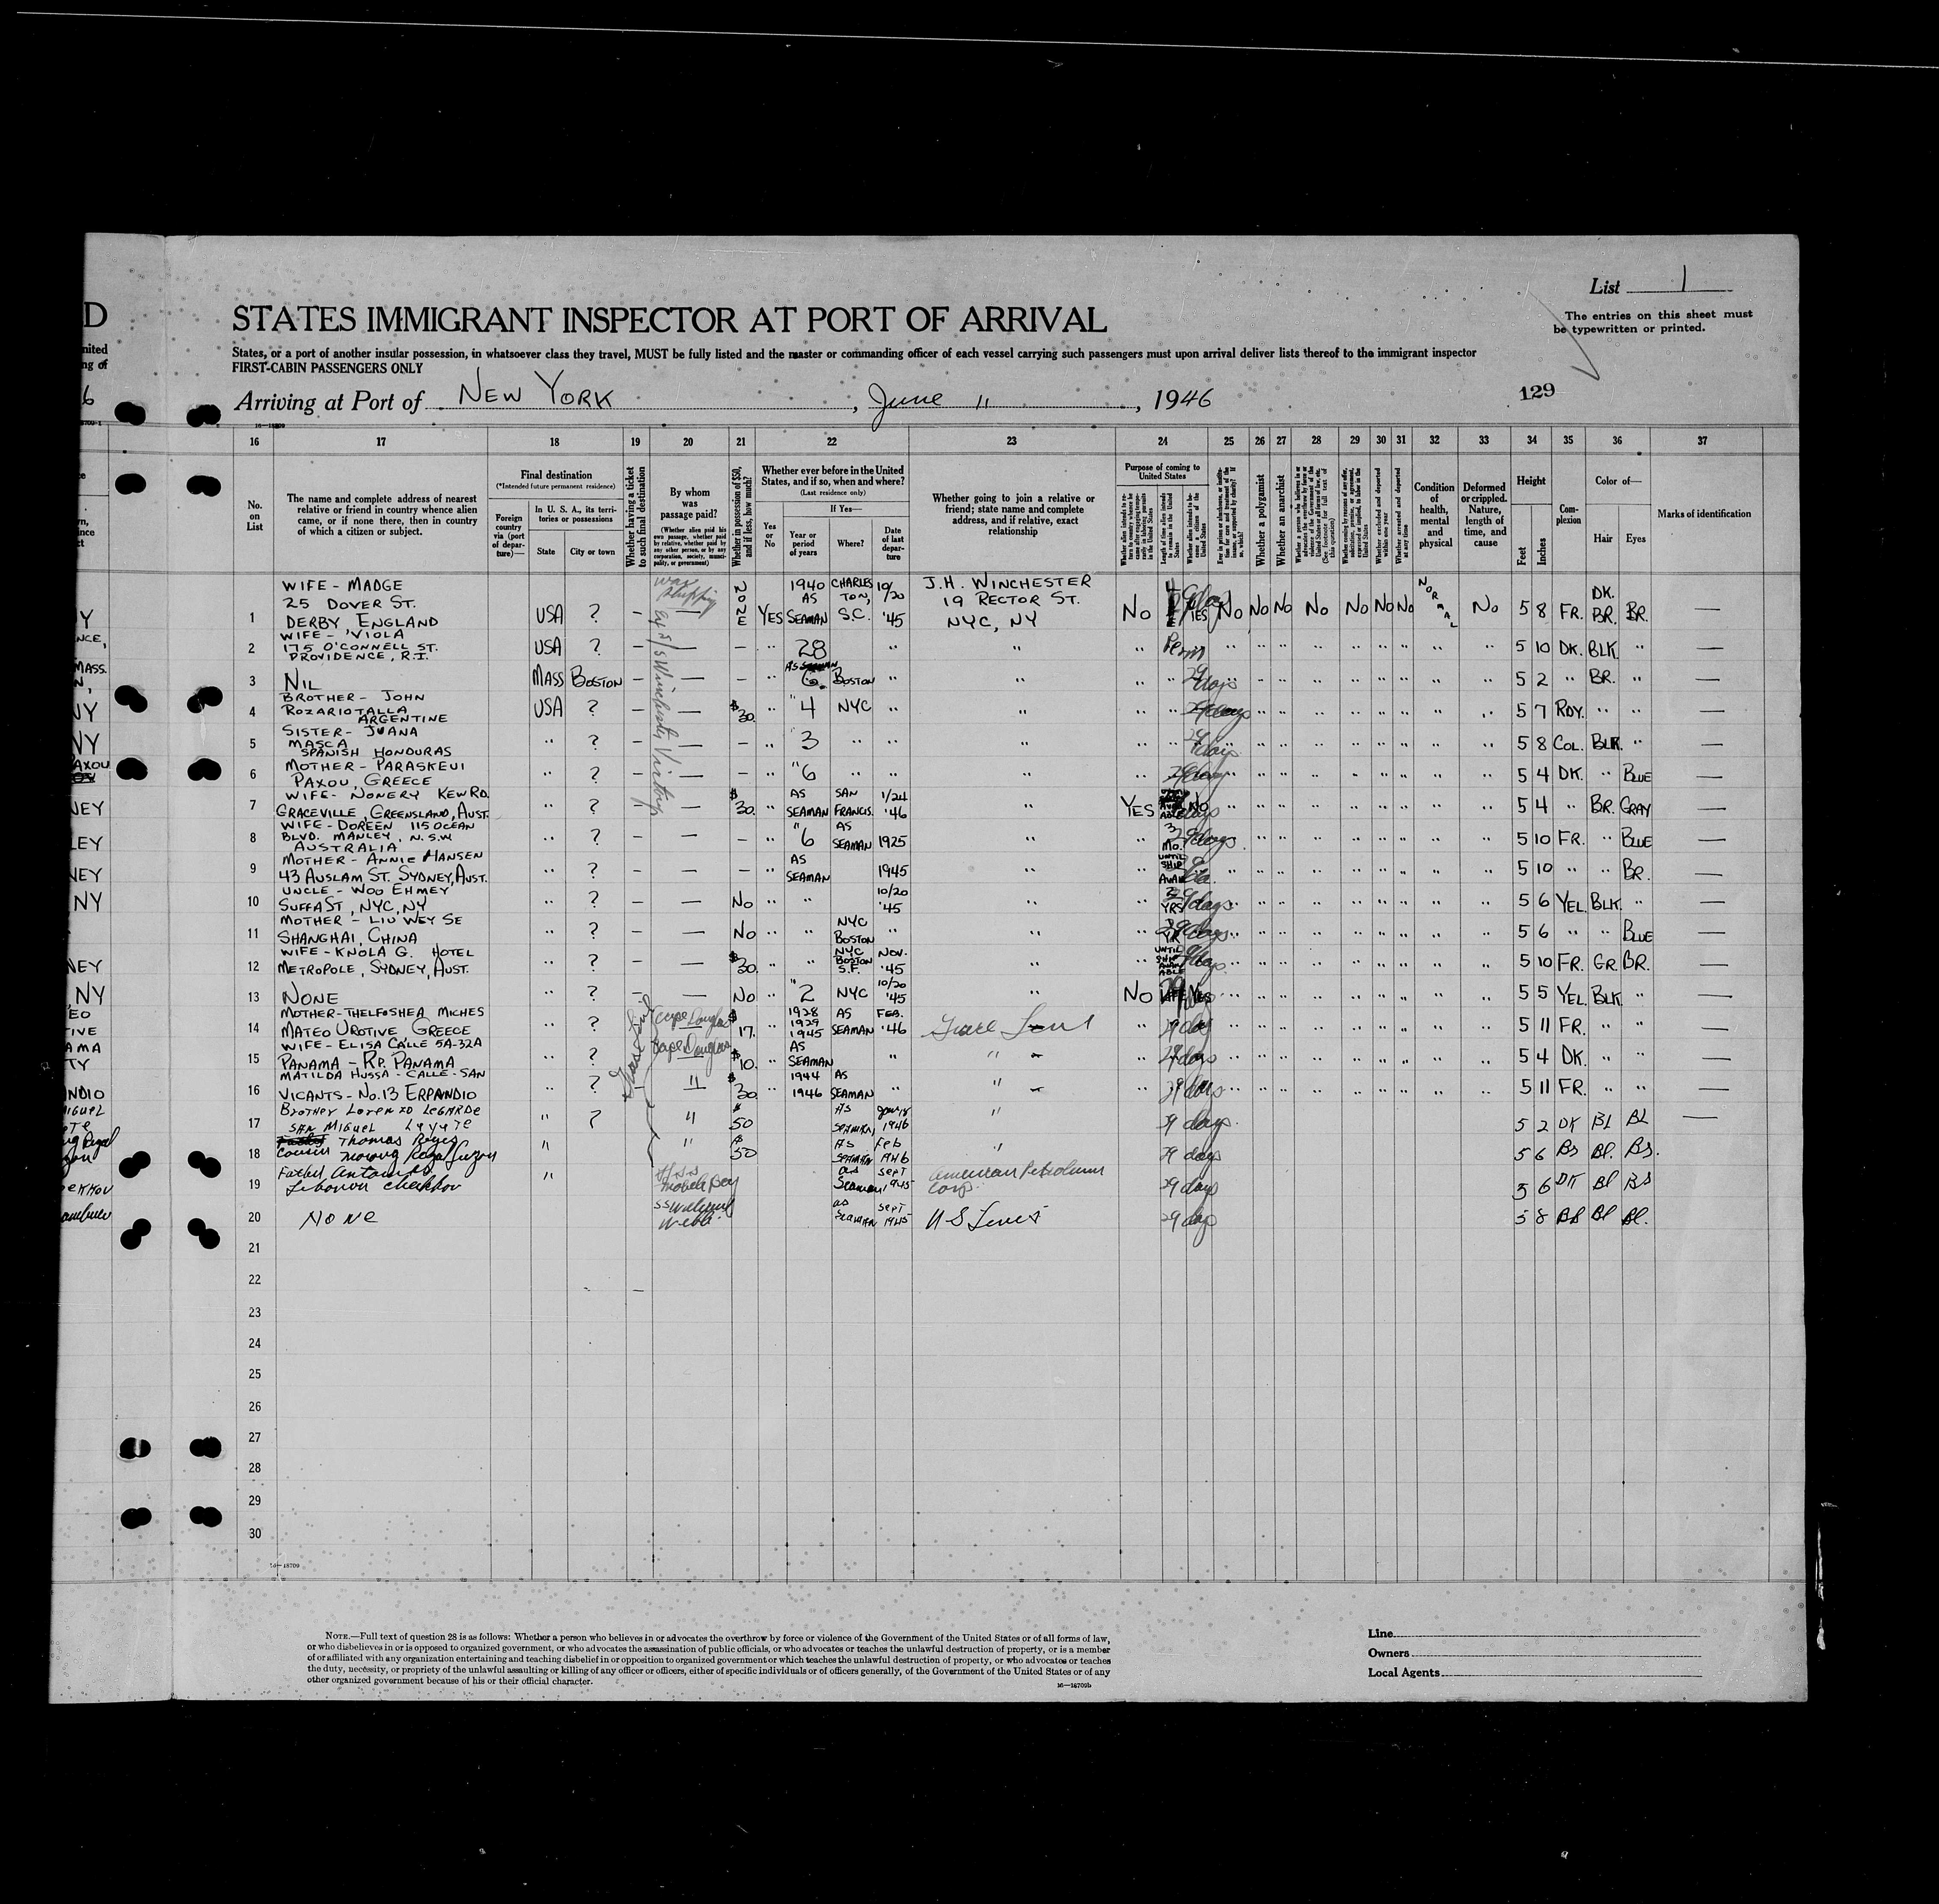 List 1
The entries on this sheet must
be typewritten or printed.
D
STATES IMMIGRANT INSPECTOR AT PORT OF ARRIVAL
nited
ng of
States, or a port of another insular possession, in whatsoever class they travel, MUST be fully listed and the master or commanding officer of each vessel carrying such passengers must upon arrival deliver lists thereof to the immigrant inspector
FIRST-CABIN PASSENGERS ONLY
6
Arriving at Port of NEW YORK, June 11, 1946
129
16 17 18 19 20 21 22 23 24 25 26 27 28 29 30 31 32 33 34 35 36 37
No. on List
The name and complete address of nearest relative or friend in country whence alien came, or if none there, then in country of which a citizen or subject.
Final destination
(*Intended future permanent residence)
Foreign country via (port of departure)—
In U. S. A., its territories or possessions
State
City or town
Whether having a ticket to such final destination
By whom was passage paid?
(Whether alien paid his own passage, whether paid by relative, whether paid by any other person, or by any corporation, society, municipality, or government)
Whether in possession of $50, and if less, how much?
Whether ever before in the United States, and if so, when and where?
(Last residence only)
If Yes—
Yes or No
Year or period of years
Where?
Date of last departure
Whether going to join a relative or friend; state name and complete address, and if relative, exact relationship
Purpose of coming to United States
Whether alien intends to return to country whence he came after engaging temporarily in laboring pursuits in the United States
Length of time alien intends to remain in the United States
Whether alien intends to become a citizen of the United States
Whether a polygamist
Whether an anarchist
Whether excluded and deported within one year
Whether arrested and deported at any time
Condition of health, mental and physical
Deformed or crippled. Nature, length of time, and cause
Height
Feet
Inches
Complexion
Color of—
Hair
Eyes
Marks of identification
1 WIFE - MADGE
25 DOVER ST.
DERBY, ENGLAND USA ? — NONE YES 1940 AS SEAMAN CHARLESTON, S.C. 10/20 '45 J.H. WINCHESTER
19 RECTOR ST.
NYC, NY No YES No No No No No No No NORMAL No 5 8 FR. DK. BR. BR. —
2 WIFE - VIOLA
175 O'CONNELL ST.
PROVIDENCE, R.I. USA ? — — — " 28 " " " Perm 5 10 DK. BLK. " —
3 NIL MASS BOSTON — — — " 6 BOSTON " " 29 days 5 2 " BR. " —
4 BROTHER - JOHN
ROZARIOTALLA
ARGENTINE USA ? — — $30. " 4 NYC " " 29 days 5 7 RDY. " " —
5 SISTER - JUANA
MASCA
SPANISH HONDURAS " ? — — — " 3 " " " 29 days 5 8 COL. BLK. " —
6 MOTHER - PARASKEVI
PAXOU, GREECE " ? — — — " 6 " " " 29 days 5 4 DK. " BLUE —
7 WIFE - NONERY KEW RD.
GRACEVILLE, GREENSLAND, AUST. " ? — — $30. " AS SEAMAN SAN FRANCIS. 1/24 '46 " YES No 5 4 " BR. GRAY —
8 WIFE - DOREEN 115 OCEAN
BLVD. MANLEY, N.S.W
AUSTRALIA " ? — — — " 6 AS SEAMAN 1925 " " 3 MO. 29 days 5 10 FR. " BLUE —
9 MOTHER - ANNIE HANSEN
43 AUSLAM ST. SYDNEY, AUST. " ? — — — " AS SEAMAN 1945 " " UNTIL SHIP AVAIL 5 10 " " BR. —
10 UNCLE - WOO EHMEY
SUFFA ST, NYC, NY " ? — — No " " 10/20 '45 " " YRS 29 days 5 6 YEL. BLK. " —
11 MOTHER - LIU WEY SE
SHANGHAI, CHINA " ? — — No " " NYC BOSTON " " " 29 days 5 6 " " BLUE —
12 WIFE - KNOLA G. HOTEL
METROPOLE, SYDNEY, AUST. " ? — — $30. " " NYC BOSTON S.F. NOV. '45 " " UNTIL SHIP 5 10 FR. GR. BR. —
13 NONE " ? — — No " 2 NYC 10/20 '45 " No YES 5 5 YEL. BLK. " —
14 MOTHER-THELFOSHEA MICHES
MATEO UROTIVE GREECE " ? Cape Douglas $17. " 1928 1929 1945 AS SEAMAN FEB. '46 Grace Line " 29 day 5 11 FR. " " —
15 WIFE - ELISA CALLE 5A-32A
PANAMA - RP. PANAMA " ? Cape Douglas $10. " AS SEAMAN " " " 29 days 5 4 DK. " " —
16 MATILDA HUSSA - CALLE - SAN
VICANTS - No.13 ERPANDIO " ? " $30 " 1944 1946 AS SEAMAN " " " 29 days 5 11 FR. " " —
17 BROTHER LORENZO LEGARDE
SAN MIGUEL LYYTE " ? " $50 AS SEAMAN, 1946 " 29 days 5 2 DK BL BL —
18 Thomas Reyes
Cousin " " $50 AS SEAMAN Feb 1946 " 29 days 5 6 Bs Bl. Bs.
19 Father Antonio
Lebanon Chekhov " Mobile Bay as Seaman Sept 1945 American Petroleum Corp. 29 days 5 6 DK Bl Bs
20 None SS Webb as Seaman Sept 1945 U S Lines 29 day 5 8 Bl Bl.
21
22
23
24
25
26
27
28
29
30
16—18709
NOTE.—Full text of question 28 is as follows: Whether a person who believes in or advocates the overthrow by force or violence of the Government of the United States or of all forms of law,
or who disbelieves in or is opposed to organized government, or who advocates the assassination of public officials, or who advocates or teaches the unlawful destruction of property, or is a member
of or affiliated with any organization entertaining and teaching disbelief in or opposition to organized government or which teaches the unlawful destruction of property, or who advocates or teaches
the duty, necessity, or propriety of the unlawful assaulting or killing of any officer or officers, either of specific individuals or of officers generally, of the Government of the United States or of any
other organized government because of his or their official character.
16—18709b
Line
Owners
Local Agents